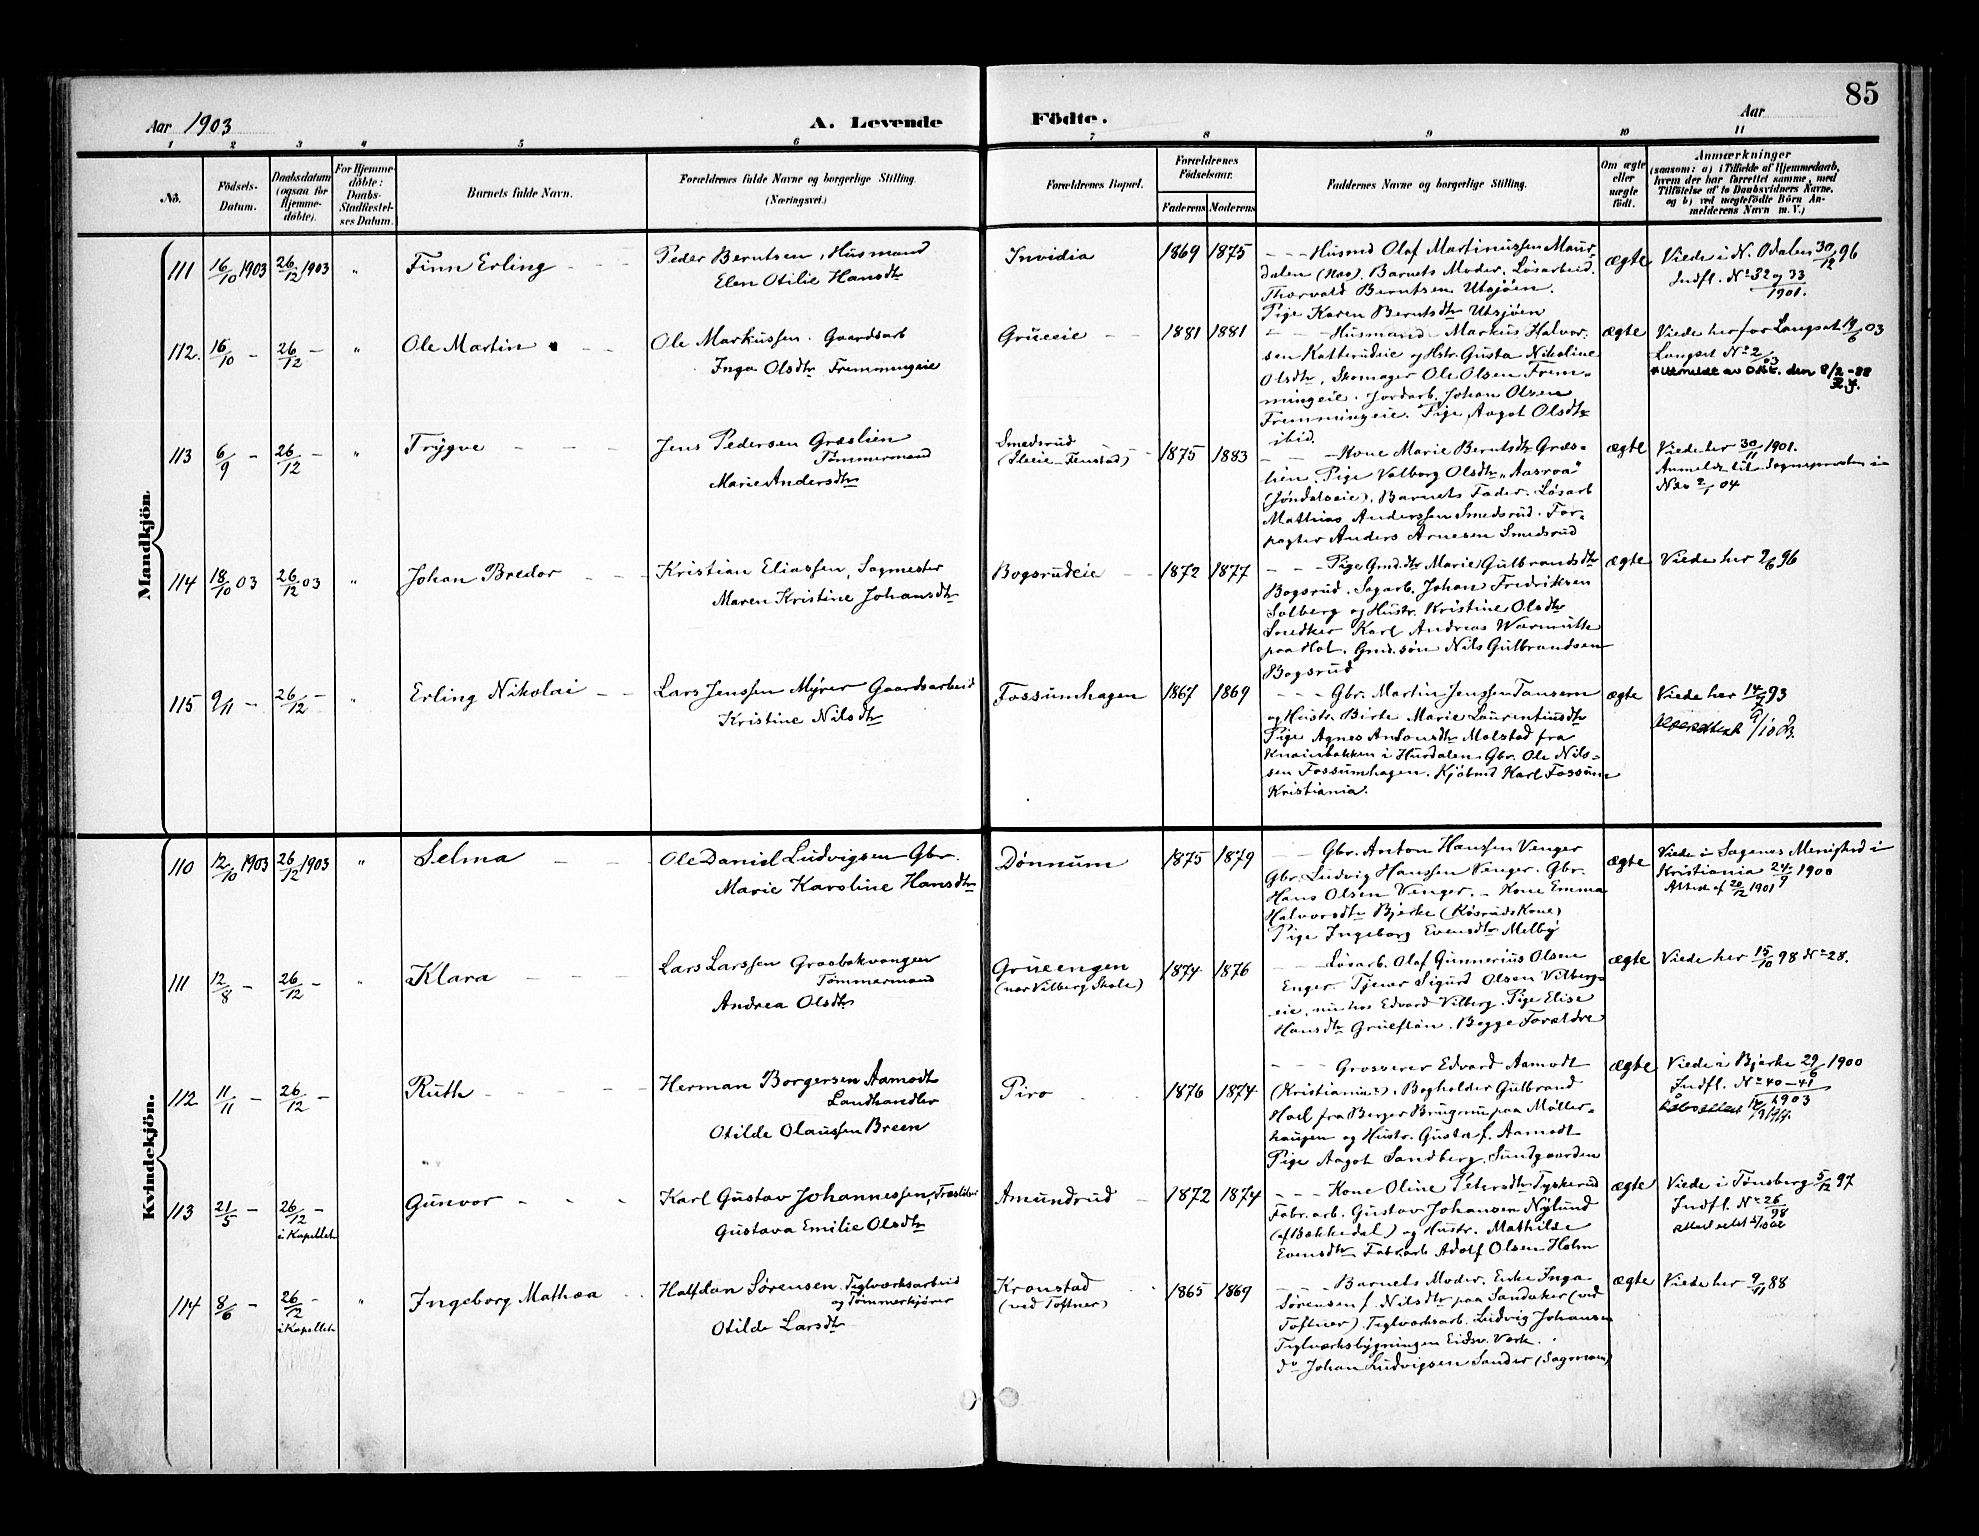 85
Aar 1903
A. Levende Födte.
Aar
1 2 3 4 5 6 7 8 9 10 11
No.
Födsels-Datum.
Daabsdatum (ogsaa för Hjemme-döbte).
For Hjemme-döbte: Daabs-Stadfæstel-ses Datum.
Barnets fulde Navn.
Forældrenes fulde Navne og borgerlige Stilling. (Næringsvei.)
Forældrenes Bopæl.
Forældrenes Födselsaar.
Faderens Moderens
Faddernes Navne og borgerlige Stilling.
Om ægte eller uægte födt.
Anmærkninger
(saasom: a) i Tilfælde af Hjemmedaab, hvem der har forrettet samme, med Tilföielse af to Daabsvidners Navne, og b) ved uægtefödte Börn An-melderens Navn m. V.)
Mandkjön.
111 16/10 1903 26/12 1903 " Finn Erling
Peder Berntsen, Husmand
Elen Otilie Hansdtr
Invidia 1869 1875
Husmd Olaf Martinussen Maur-
dalen (Næs). Barnets Moder. Løsarbeid.
Thorvald Berntsen Utsjøen.
Pige Karen Berntsdtr Utsjøen
ægte
Viede i N. Odalen 30/12 96
Indfl. No 32 og 33
1901.
112. 16/10 - 26/12 - " Ole Martin
Ole Markussen. Gaardsarb
Inga Olsdtr Fremmingeie
Grüeeie 1881 1881
Husmand Markus Halvor-
sen Katterudeie og Hstr. Gusta Nikoline
Olsdtr, Skomager Ole Olsen Frem-
mingeie. Jordarb. Johan Olsen
Fremmingeie. Pige Aagot Olsdtr
ibid.
ægte
Viede her for Langset 14/6 03
Langset No 2/03
113 6/9 - 26/12 - " Trygve
Jens Pedersen Græslien
Tømmermand
Marie Andersdtr
Smedsrud
(Ileeie-Finstad) 1875 1883
Kone Marie Berntsdtr Græs-
lien. Pige Valborg Olsdtr "Aasroa"
(Jøndalseie), Barnets Fader. Løsarb
Mathias Anderssen Smedsrud. For-
pagter Anders Arnesen Smedsrud
ægte
Viede her 30/11 1901.
Anmeldt til Sognepræsten i
Næs 2/1 04
114 18/10 03 26/12 03 " Johan Bredor
Kristian Eliassen, Sagmester
Maren Kristine Johansdtr
Bogsrudeie 1872 1877
Pige Gmd.dtr Marie Gulbrandsdtr
Bogsrud. Sagarb. Johan Fredriksen
Solberg og Hustr. Kristine Olsdtr
Snedker Karl Andreas Wormutte
paa Hol. Gmd.søn Nils Gulbrandsen
Bogsrud
ægte
Viede her 2/6 96
115 9/11 - 26/12 - " Erling Nikolai
Lars Jenssen Myrer Gaardsarbeid
Kristine Nilsdtr
Fossumhagen 1867 1869
Gbr. Martin Jenssen Tansem
og Hustr. Birte Marie Laurentiusdtr
Pige Agnes Antonsdtr Molstad fra
Knaisbakken i Hurdalen. Gbr. Ole Nils-
sen Fossumhagen. Kjøbmd Karl Fossum
Kristiania.
ægte
Viede her 14/7 93
Kvindekjön.
110 12/10 1903 26/12 1903 " Selma
Ole Daniel Ludvigsen Gbr.
Marie Karoline Hansdtr
Dønnum 1875 1879
Gbr. Anton Hanssen Venger
Gbr. Ludvig Hanssen Venger. Gbr.
Hans Olsen Venger. - Kone Emma
Halvorsdtr Bjerke (Røsruds Kone)
Pige Ingeborg Evensdtr Melby
ægte
Viede i Sagenes Menighed i
Kristiania 24/9 1900
Attest af 20/12 1901
111 12/8 - 26/12 - " Klara
Lars Larssen Graabakvangen
Tømmermand
Andrea Olsdtr
Grüeengen
(nær Vilberg Skole) 1874 1876
Løsarb. Olaf Gunnerius Olsen
Enger. Tjener Sigurd Olsen Vilberg-
eie, nu hos Edvard Vilberg. Pige Elise
Hansdtr Grüeflan. Begge Forældre
ægte
Viede her 15/10 98 No 28.
112 11/11 - 26/12 - Ruth
Herman Borgersen Aamodt
Landhandler
Otilde Olaussen Breen
Piro 1876 1874
Grosserer Edvard Aamodt
(Kristiania). Bogholder Gulbrand
Hoel fra Berger Brug nu paa Møller-
haugen og Hustr. Gusta f. Aamodt
Pige Aagot Sandberg, Sundgaarden
ægte
Viede i Bjerke 29/6 1900
Indfl. No 40-41
1903
113 21/5 - 26/12 - i Kapellet Gunvor
Karl Gustav Johannessen, Træsliber
Gustava Emilie Olsdtr
Amundrud 1872 1874
Kone Oline Petersdtr Tyskerud
Fabr.arb. Gustav Johansen Nylund
(af Bækkedal) og Hustr. Mathilde
Evensdtr. Fabr.arb Adolf Olsen Holm
ægte
Viede i Tønsberg 5/12 97
Indfl. No 26/98
114 8/6 - 26/12 - i Kapellet " Ingeborg Mathea
Halfdan Sørensen. Teglværksarbeid
og Tømmerkjører
Otilde Larsdtr
Kronstad
(ved Toftner) 1865 1869
Barnets Moder. Enke Inga
Sørensen f. Nilsdtr paa Sandaker (ved
Toftner). Teglværksarb. Ludvig Johansen
Teglværksbygningen Eidsv. Værk.
Do Johan Ludvigsen Sander (Sagmoen)
ægte
Viede her 9/11 88